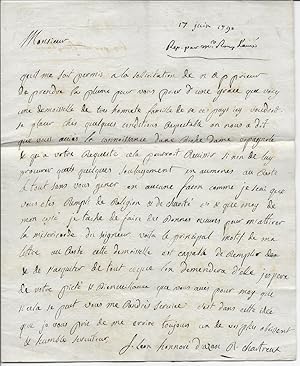 17 juin 1790
Monsieur
Rep. par
qu'il me soit permis a la solicitation de n. d. prieur
de prendre la plume pour vous prier d'une grace que voicy
une demoiselle de tres honnete famille de ce pays icy voudroit
se placer chez quelques conditions on nous a dit
que vous aviez la connoissance d'une riche dame
et qu'a votre requete cela pourroit reussir et afin de luy
procurer quelques soulagement en aumones au reste
a tout sans vous gener en aucune facon comme je scai que
vous etes rempli de Religion et de charité et que moy de
mon coté je tache de faire les bonnes œuvres pour m'attirer
la misericorde du seigneur voila le principal motif de ma
lettre au reste cette demoiselle est capable de remplir
et de s'aquiter de tout ce que l'on demandera d'elle j'espere
de votre pieté et bienveillance que vous avez pour moy que
si cela se peut vous me rendrés service c'est dans cette idée
que je vous prie de me croire toujours un de vos plus obeissant
et humble serviteur
f. Leon honnoré d. chartreux